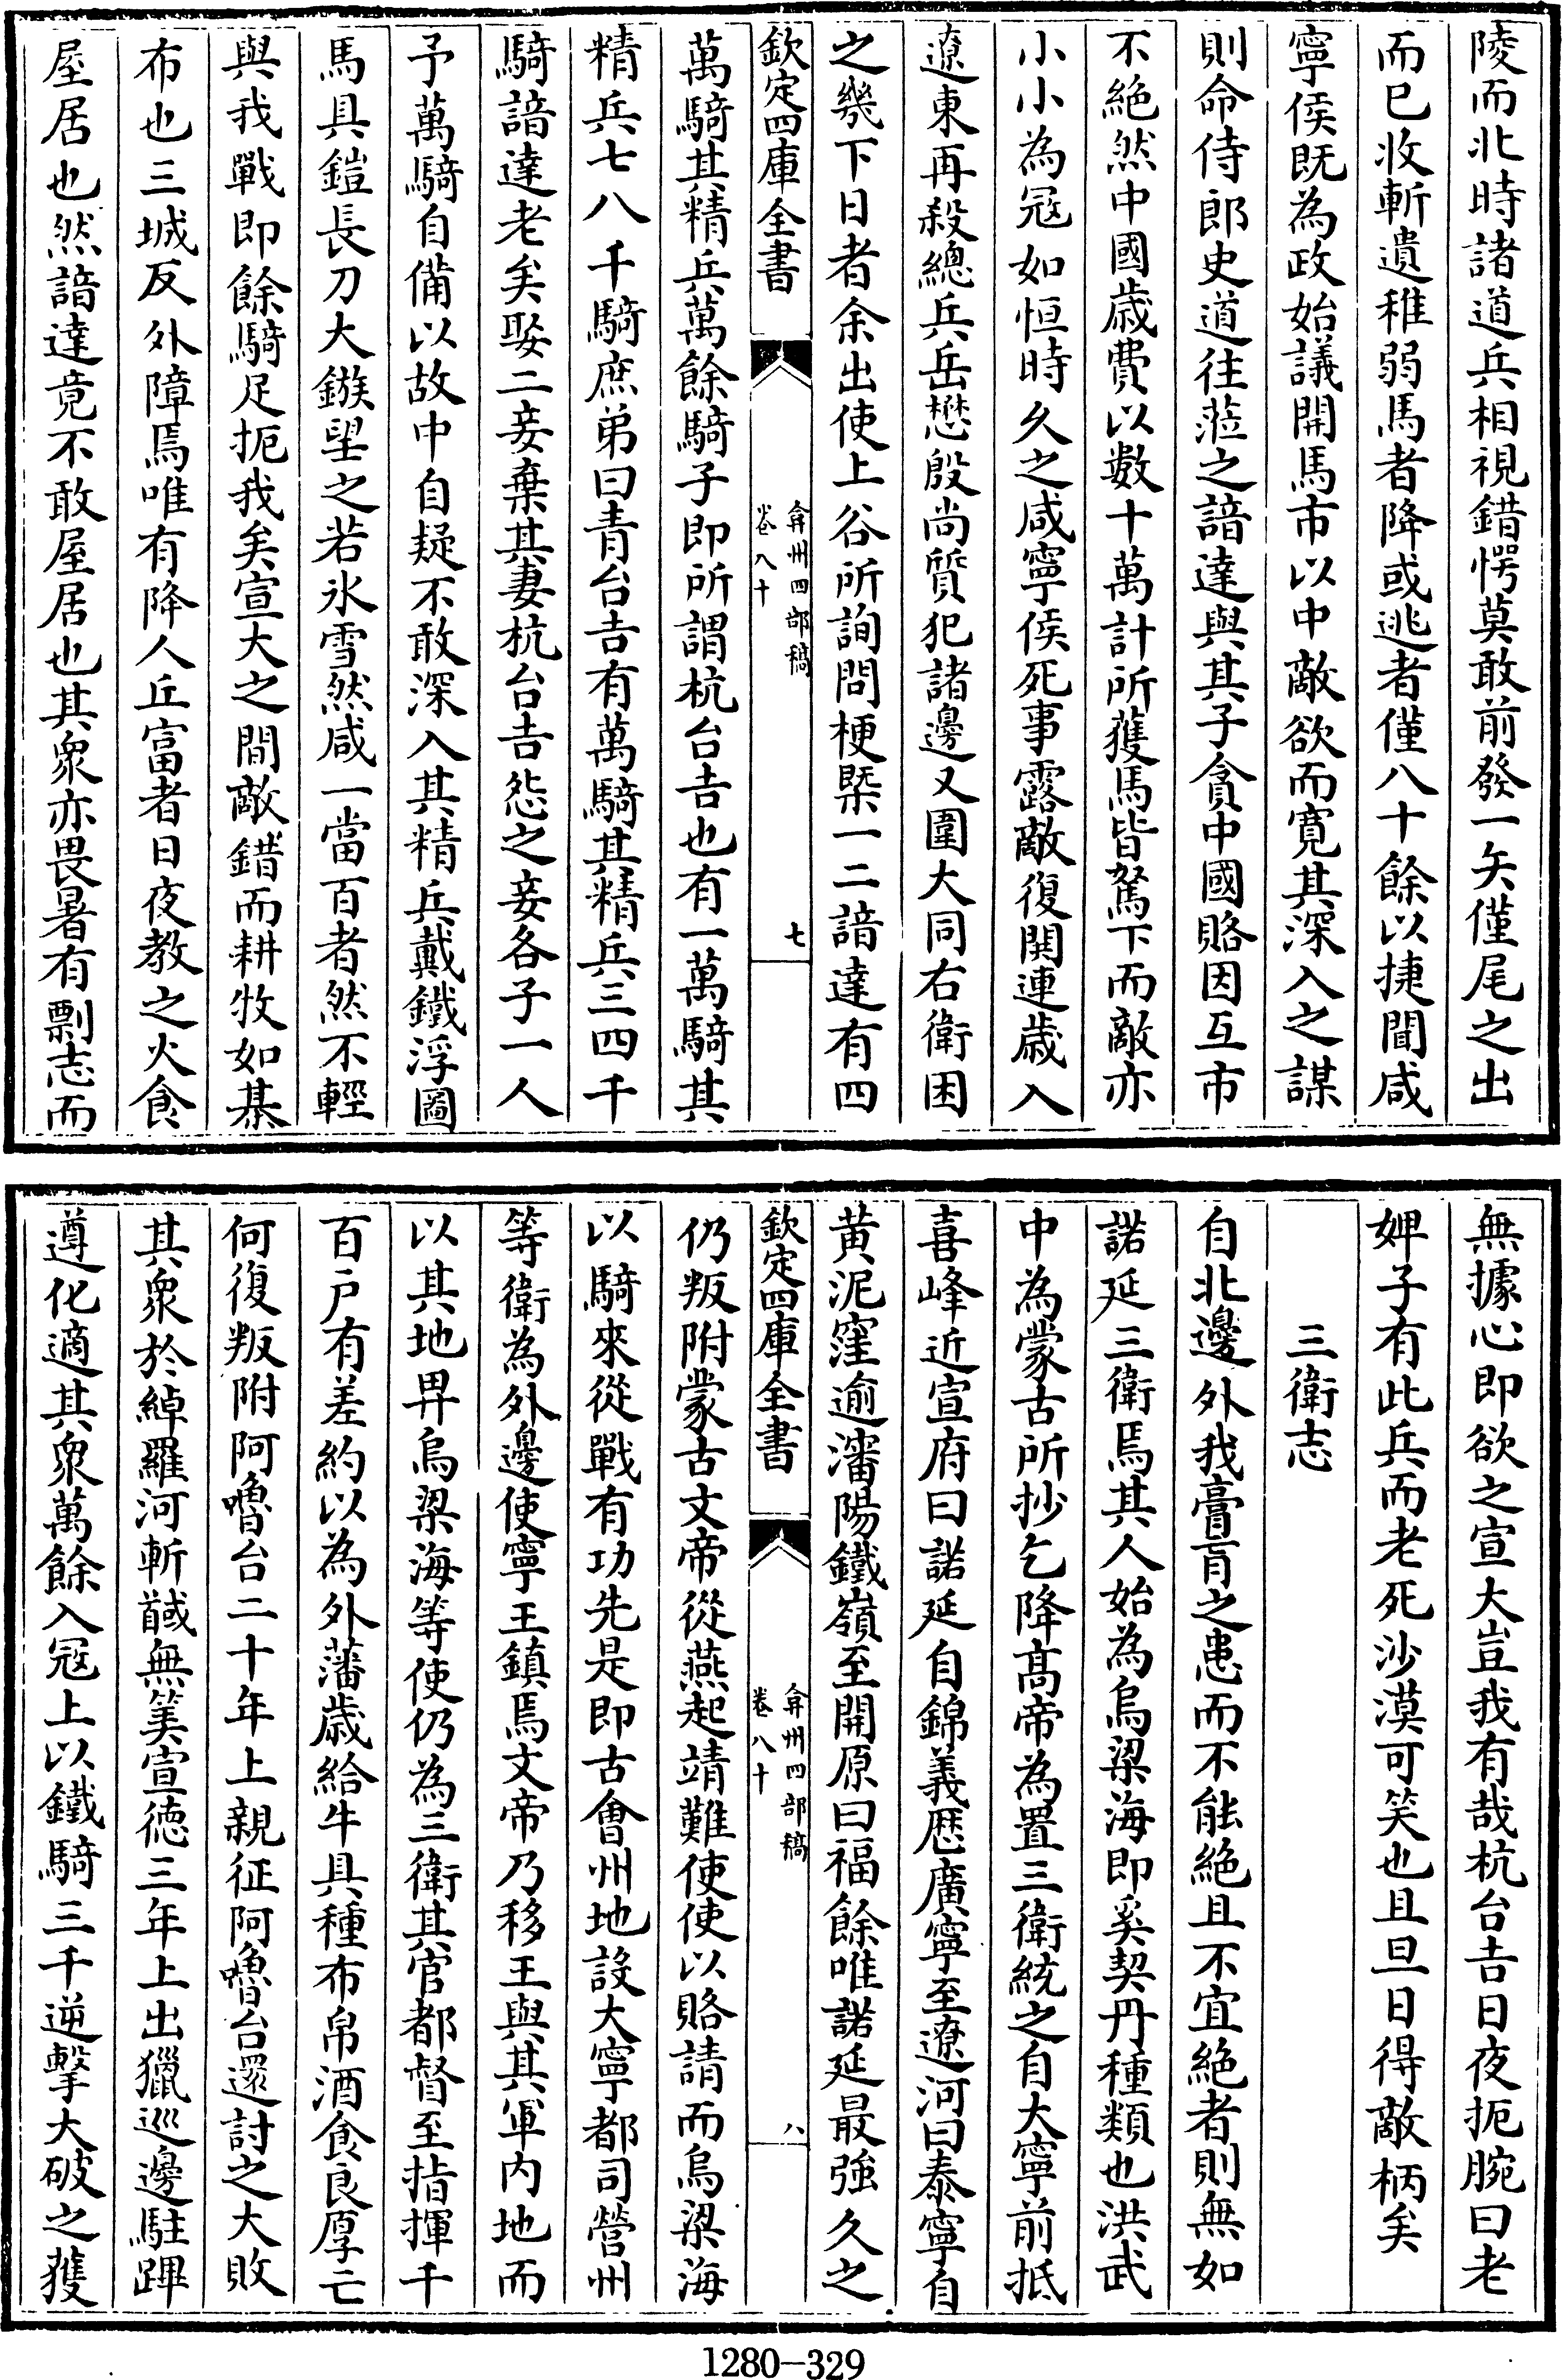 陵而北時諸道兵相視錯愕莫敢前發一矢僅尾之出
而已收斬遺稚弱馬者降或逃者僅八十餘以捷聞咸
寧侯既為政始議開馬市以中敵欲而寛其深入之謀
則命侍郎史道往蒞之諳達與其子貪中國賂因互市
不絶然中國歳費以數十萬計所獲馬皆駑下而敵亦
小小為冦如恒時久之咸寧侯死事露敵復閧連歳入
遼東再殺總兵岳懋殷尚質犯諸邊又圍大同右衛困
之幾下日者余出使上谷所詢問梗槩一二諳達有四
欽定四庫全書
弇州四部稿
卷八十
七
萬騎其精兵萬餘騎子即所謂杭台吉也有一萬騎其
精兵七八千騎庶弟曰青台吉有萬騎其精兵三四千
騎諳達老矣娶二妾棄其妻杭台吉怨之妾各子一人
予萬騎自備以故中自疑不敢深入其精兵戴鐵浮圖
馬具鎧長刀大鏃望之若氷雪然咸一當百者然不輕
與我戰即餘騎足扼我矣宣大之間敵錯而耕牧如棊
布也三城反外障焉唯有降人丘富者日夜教之火食
屋居也然諳達竟不敢屋居也其衆亦畏暑有剽志而
無據心即欲之宣大豈我有哉杭台吉日夜扼腕曰老
婢子有此兵而老死沙漠可笑也且旦日得敵柄矣
三衛志
自北邊外我膏肓之患而不能絶且不宜絶者則無如
諾延三衛焉其人始為烏梁海即奚契丹種類也洪武
中為蒙古所抄乞降髙帝為置三衛統之自大寧前抵
喜峰近宣府曰諾延自錦義歴廣寧至遼河曰泰寧自
黄泥窪逾瀋陽鐵嶺至開原曰福餘唯諾延最強久之
欽定四庫全書
弇州四部稿
卷八十
八
仍叛附蒙古文帝從燕起靖難使使以賂請而烏梁海
以騎來從戰有功先是即古㑹州地設大寧都司營州
等衛為外邊使寧王鎮焉文帝乃移王與其軍内地而
以其地畀烏梁海等使仍為三衛其官都督至指揮千
百戸有差約以為外藩歳給牛具種布帛酒食良厚亡
何復叛附阿嚕台二十年上親征阿嚕台還討之大敗
其衆於綽羅河斬馘無筭宣徳三年上出獵巡邊駐蹕
遵化適其衆萬餘入冦上以鐵騎三千逆擊大破之獲
1280-329